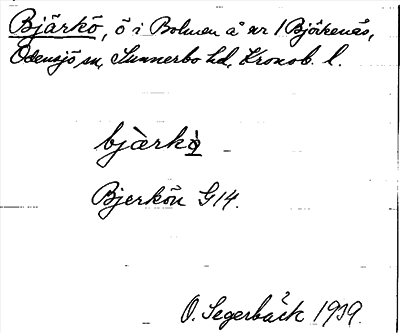 Bjärkö, ö i Bolmen å nr 1 Björkenäs,
Odensjö sn, Sunnerbo hd, Kronob. l.
bjàrkò̱
Bjerkön G14.
O. Segerbäck 1919.